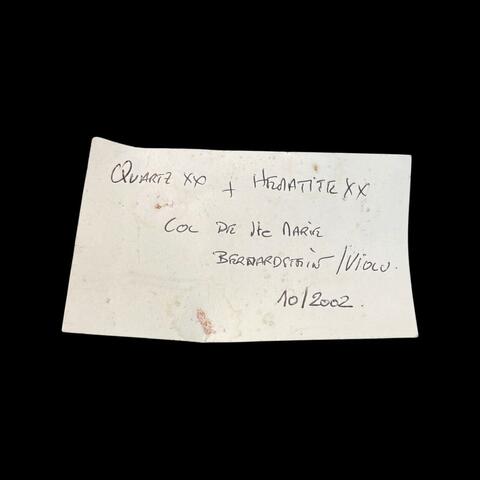 QUARTZ XX + HEMATITE XX
COL DE Ste MARIE
BERNARDSTEIN / VIOLU.
10/2002.